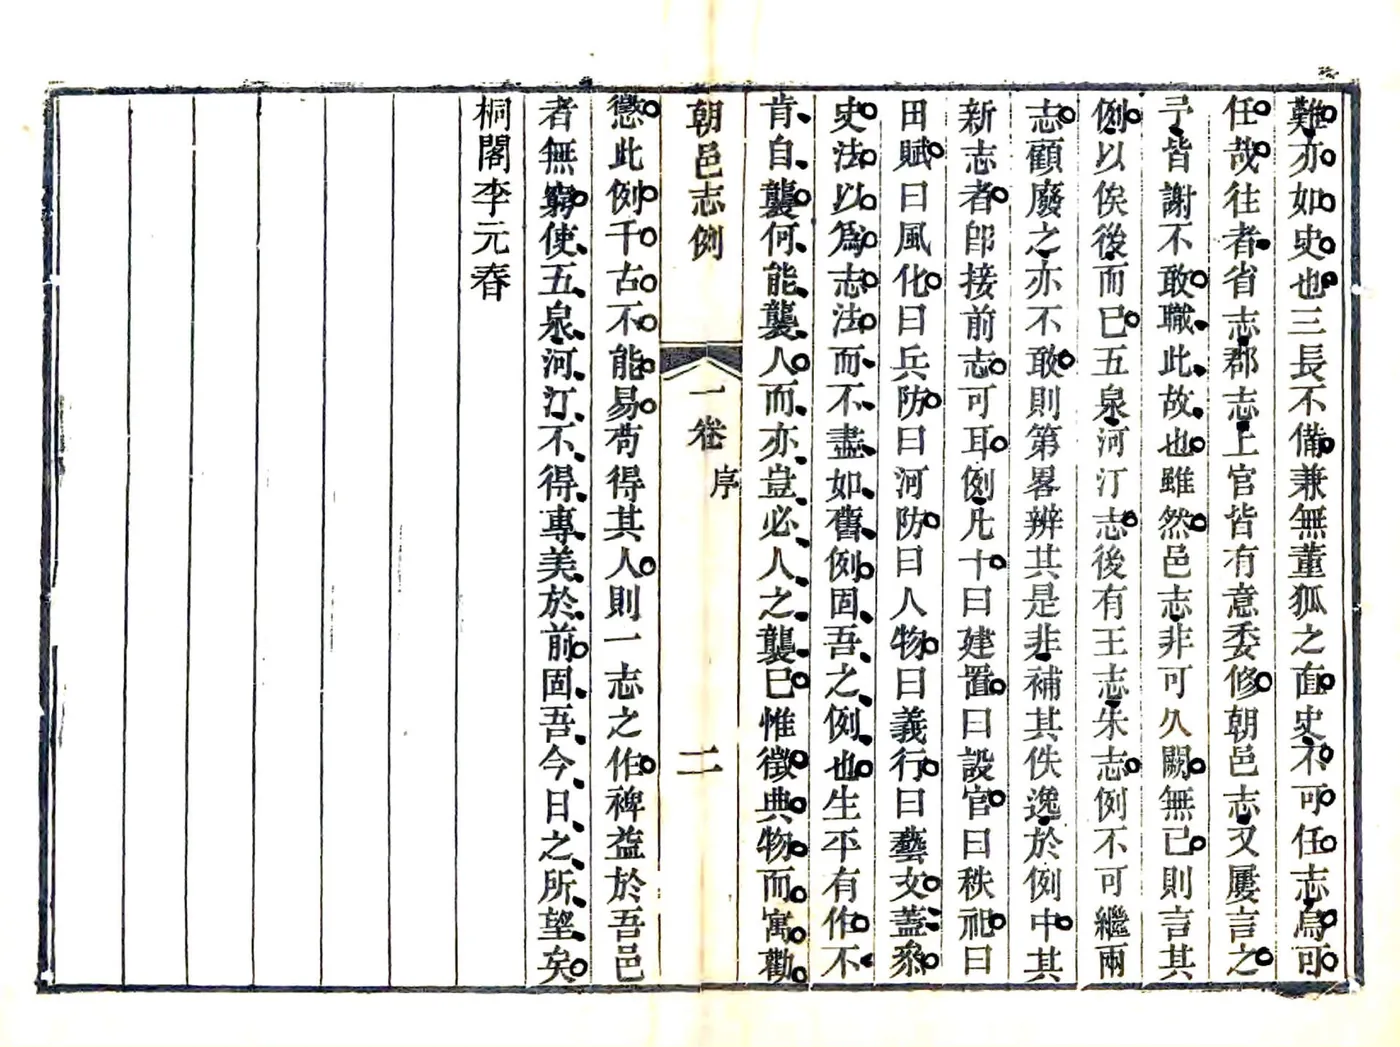 難亦如史也三長不備兼無董狐之面史不可任志烏可
任哉往者省志郡志上官皆有意委修朝邑志又屢言之
予皆謝不敢職此故也雖然邑志非可久闕無已則言其
例以俟後而已五泉河汀志後有王志朱志例不可繼兩
志顧廢之亦不敢則第畧辨其是非補其佚逸於例中其
新志者卽接前志可耳例凡十曰建置曰設官曰秩祀曰
田賦曰風化曰兵防曰河防曰人物曰義行曰藝文蓋叅
史法以爲志法而不盡如舊例固吾之例也生平有作不
肯自襲何能襲人而亦豈必人之襲已惟徵典物而寓勸
朝邑志例 一卷 序 二
懲此例千古不能易苟得其人則一志之作裨益於吾邑
者無窮使五泉河汀不得專美於前固吾今日之所望矣
桐閣李元春